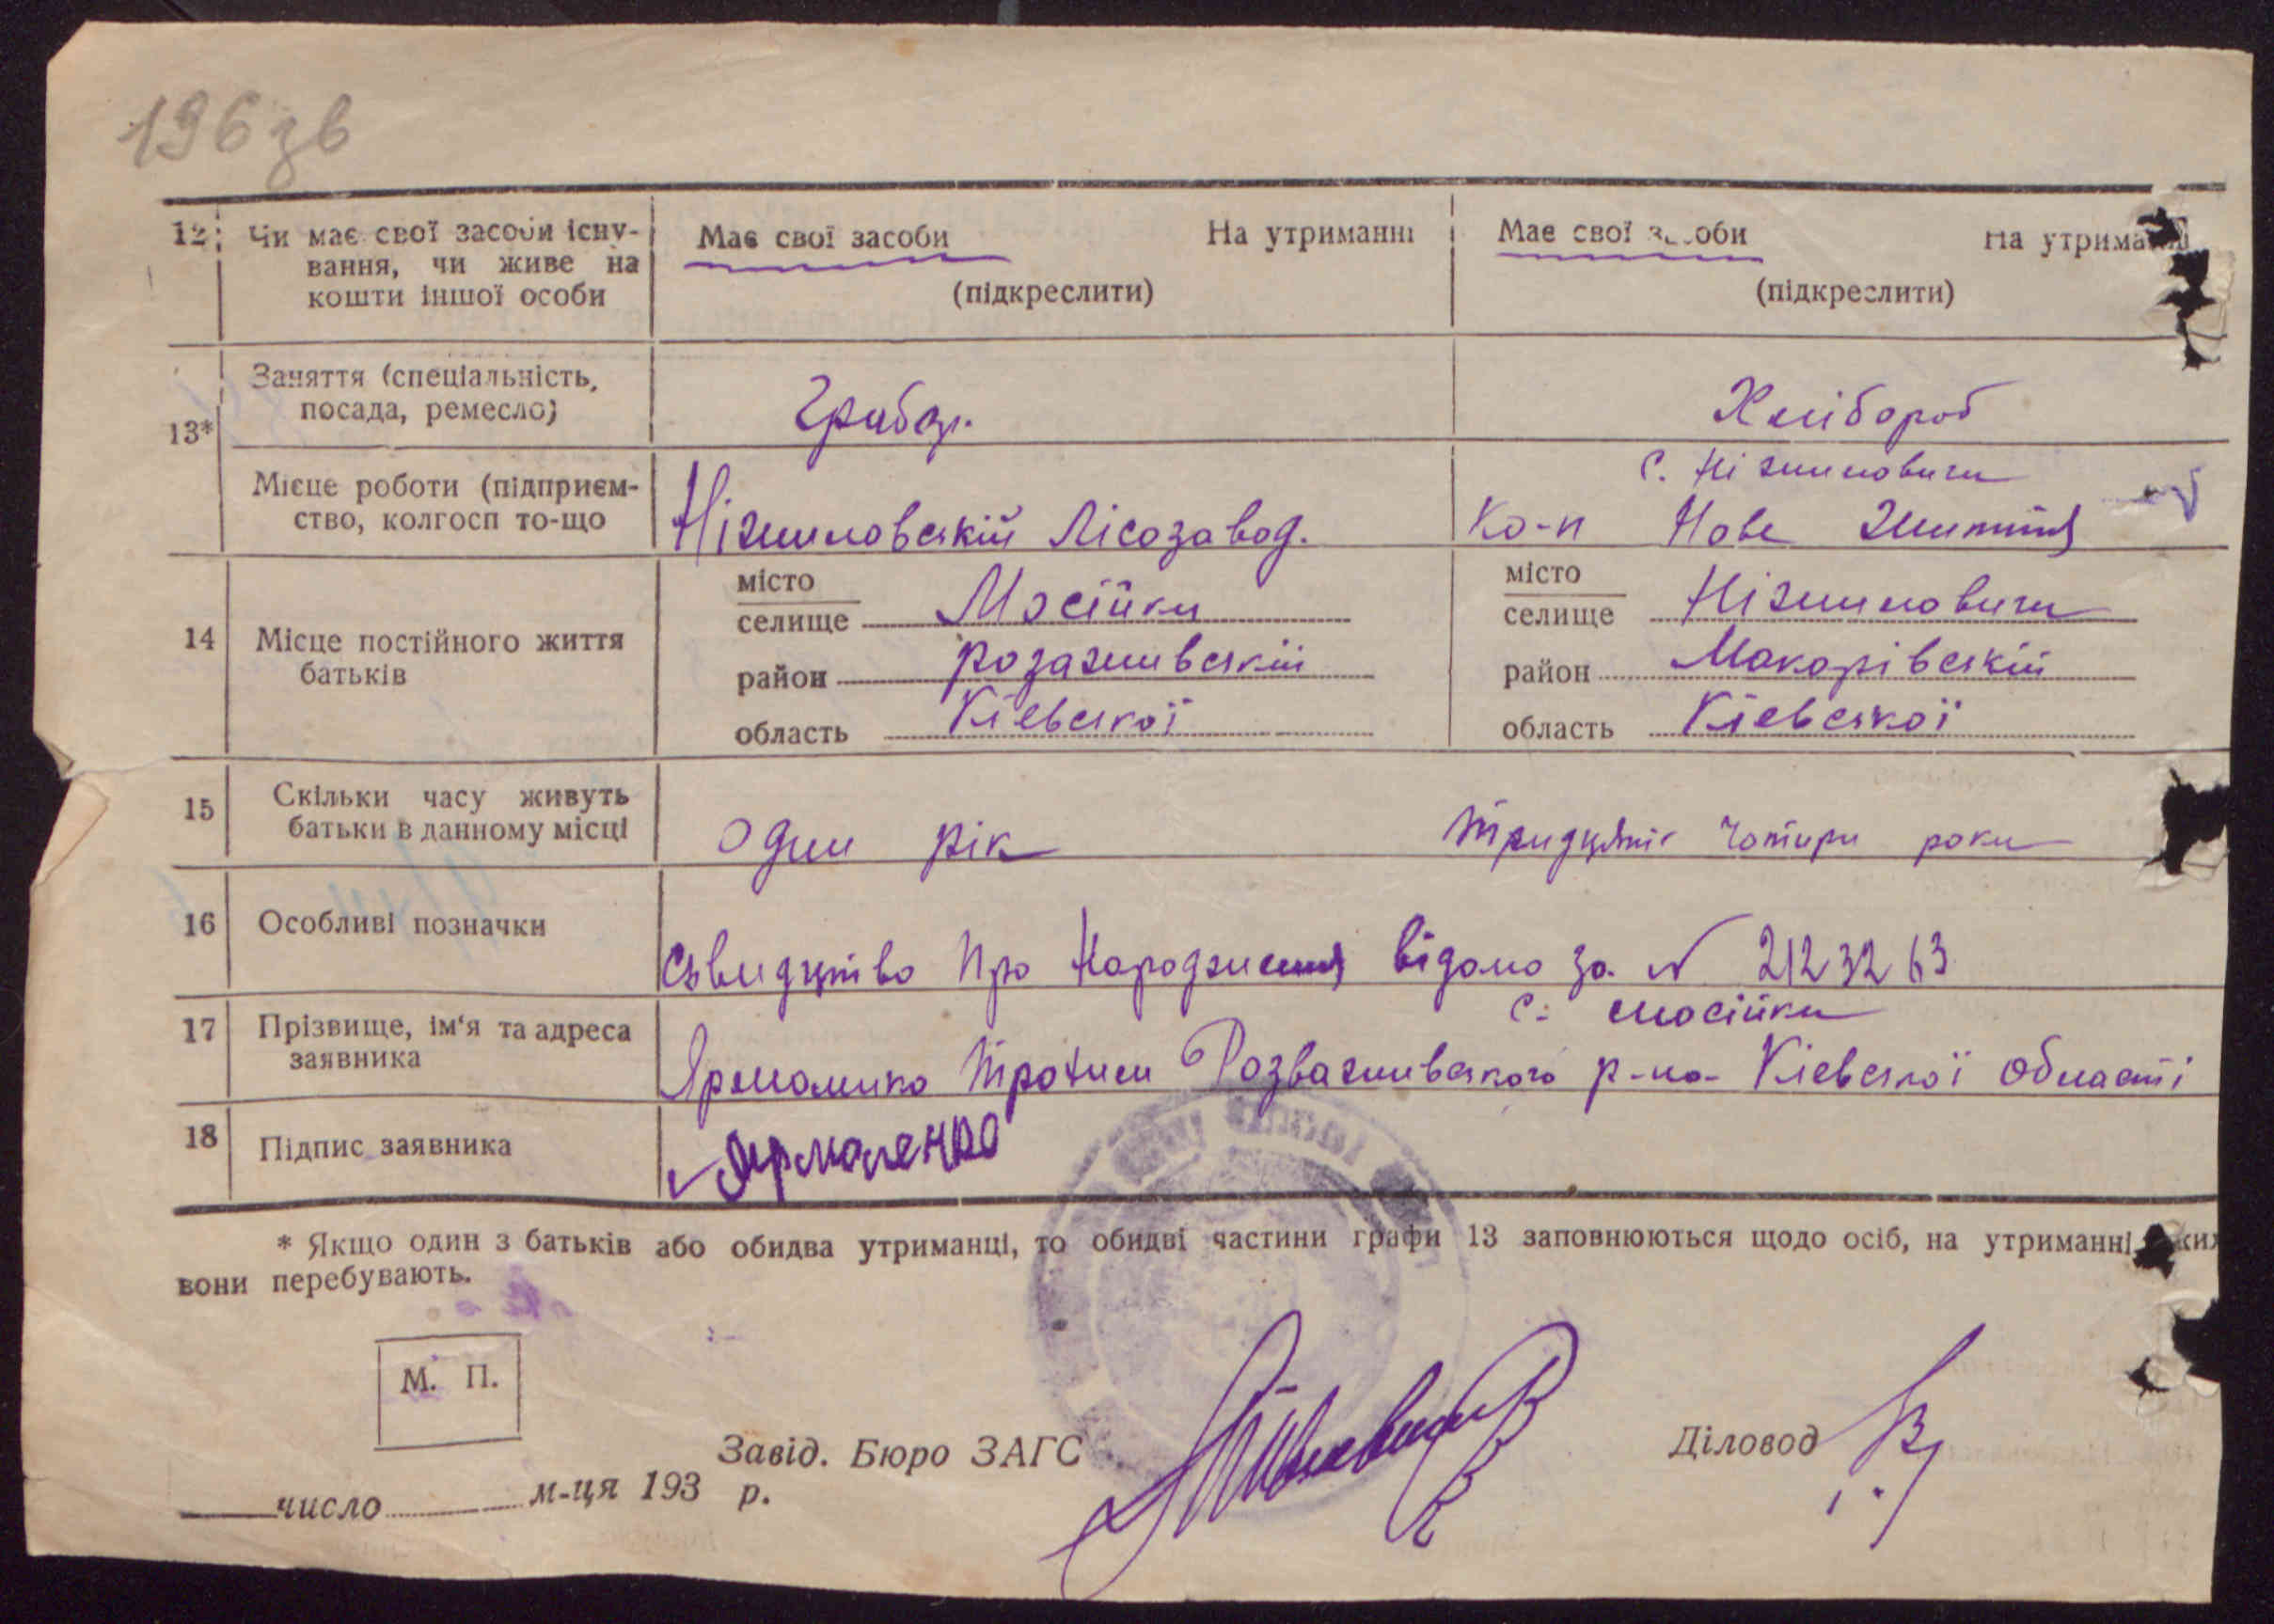 196 зв
12 Чи має свої засоби існу-
вання, чи живе на
кошти іншої особи
Має свої засоби На утриманні
(підкреслити)
Має свої засоби На утриманні
(підкреслити)
13*
Заняття (спеціальність,
посада, ремесло)
Грабар.
Хлібороб
Місце роботи (підприєм-
ство, колгосп то-що
Ніжиловскій Лісозавод.
с. Ніжиловичи
Ко-п Нове Життя
14 Місце постійного життя
батьків
місто
селище Мосійки
район Розаживскій
область Кіевскої
місто
селище Ніжиловичи
район Макарівскій
область Кіевскої
15 Скільки часу живуть
батьки в данному місці
Один рік
Тридцять чотири роки
16 Особливі позначки
Свидцтво Про Народження відано за N 2123263
17 Прізвище, ім‘я та адреса
заявника
с. мосійки
Ярмоленко Трохим Розваживского р-на- Кіевскої Області
18 Підпис заявника
Ярмоленко
* Якщо один з батьків або обидва утриманці, то обидві частини графи 13 заповнюються щодо осіб, на утриманні яких
вони перебувають.
М. П.
Завід. Бюро ЗАГС
Діловод
число м-ця 193 р.